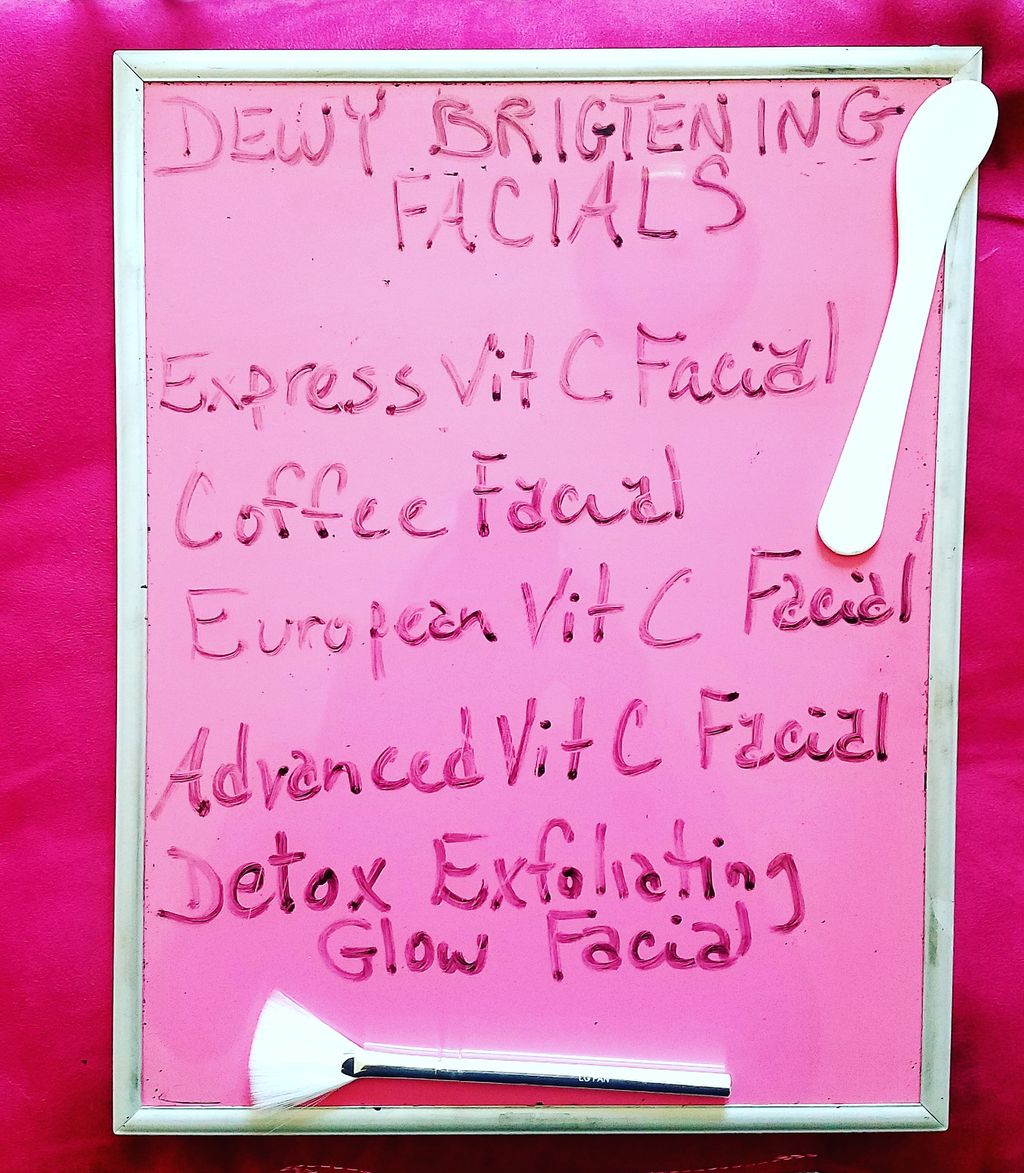 DEWY BRIGTENING
FACIALS
Express Vit C Facial
Coffee Facial
European Vit C Facial
Advanced Vit C Facial
Detox Exfoliating
Glow Facial